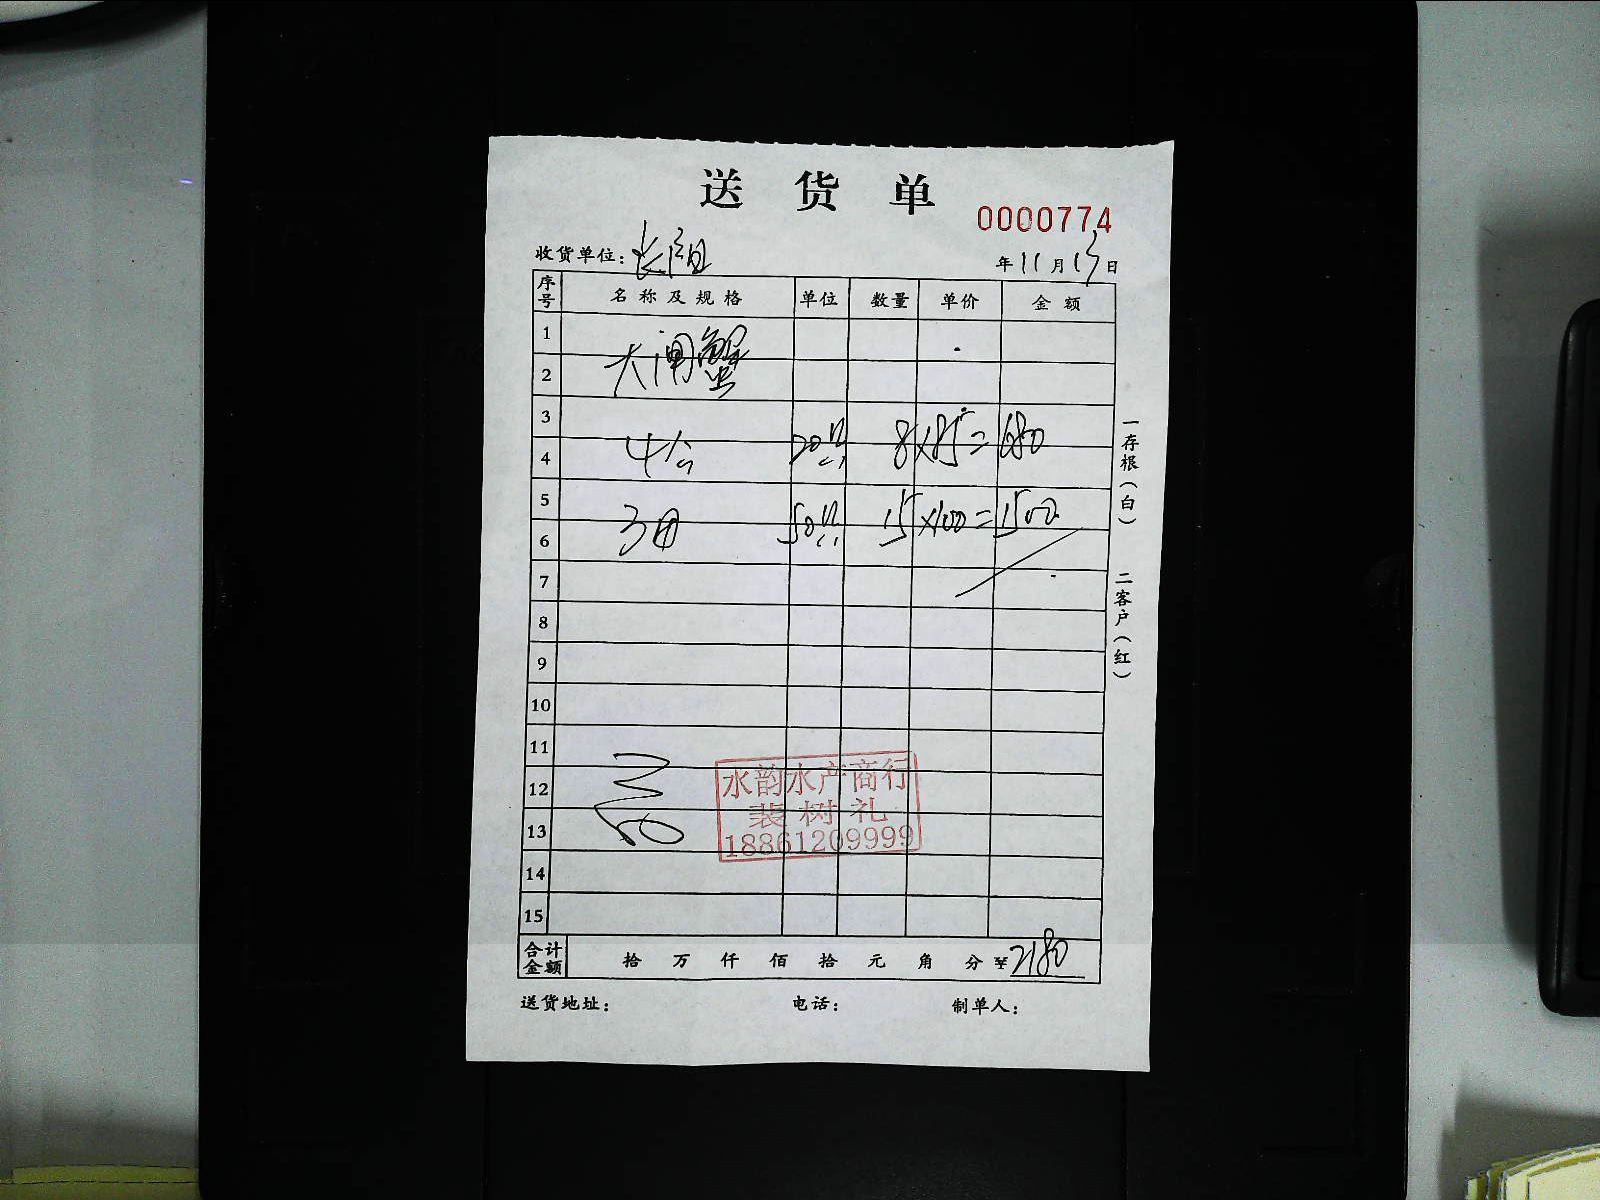 送货单
0000774
收货单位：长阳 年11月15日
序号 名称及规格 单位 数量 单价 金额
1
大闸蟹
2
3
4公 20只 8×85=680
4
5
3母 50只 15×100=1500
6
7
8
9
10
11
12
13
14
15
水韵水产商行
裴树礼
18861209999
合计金额 拾万仟佰拾元角分 ¥2180
送货地址： 电话： 制单人：
一存根（白）
二客户（红）